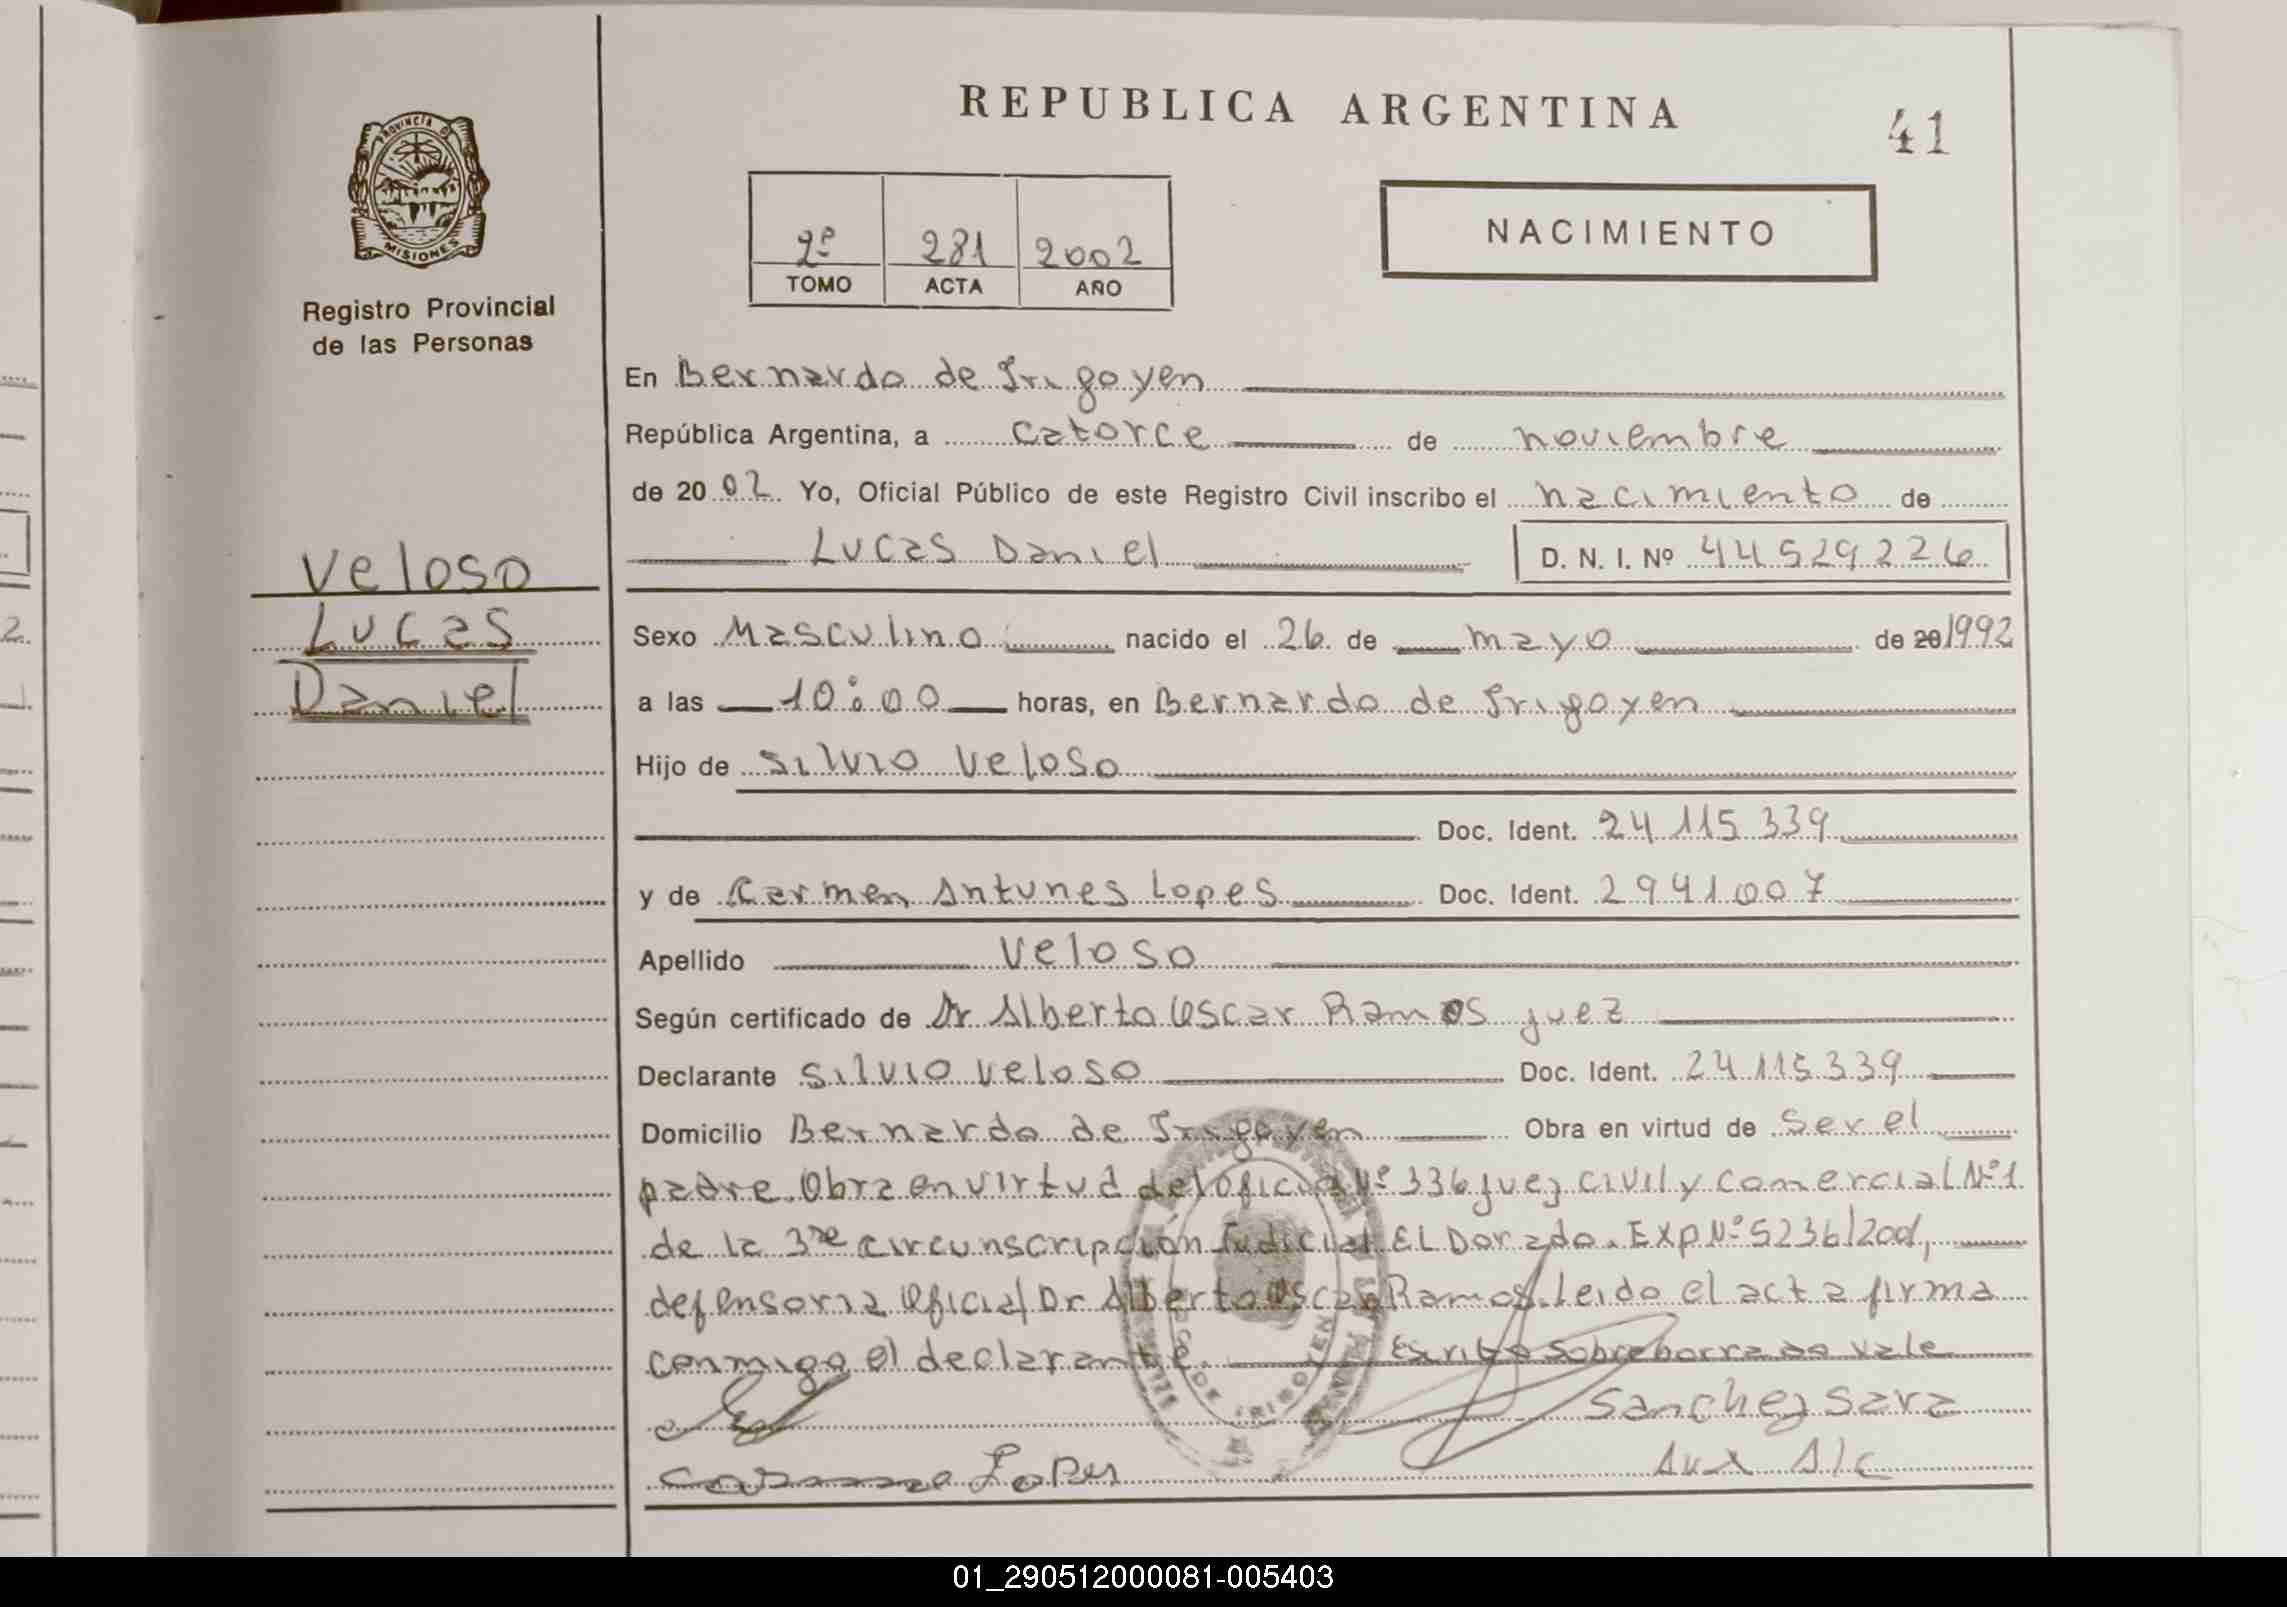 REPUBLICA ARGENTINA
41
PROVINCIA DE
MISIONES
Registro Provincial
de las Personas
2º 281 2002
TOMO ACTA AÑO
NACIMIENTO
En Bernardo de Irigoyen
República Argentina, a catorce de noviembre
de 2002 Yo, Oficial Público de este Registro Civil inscribo el nacimiento de
Lucas Daniel D. N. I. Nº 44529226
Veloso
Lucas
Daniel
Sexo Masculino nacido el 26 de mayo de 20 1992
a las 10:00 horas, en Bernardo de Irigoyen
Hijo de Silvio Veloso
Doc. Ident. 24 115 339
y de Carmen Antunes Lopes Doc. Ident. 2941007
Apellido Veloso
Según certificado de Dr Alberto Oscar Ramos juez
Declarante Silvio Veloso Doc. Ident. 24 115 339
Domicilio Bernardo de Irigoyen Obra en virtud de Ser el
padre. Obra en virtud del oficio Nº 336 juez civil y comercial Nº 1
de la 3ra circunscripción Judicial EL Dorado. Exp Nº 5236/2001,
defensoria Oficial Dr Alberto Oscar Ramos. Leido el acta firma
conmigo el declarante. Escrito sobreborrado vale
Sanchez Sara
Lopes Aux A/C
DE IRIGOYEN
01_290512000081-005403